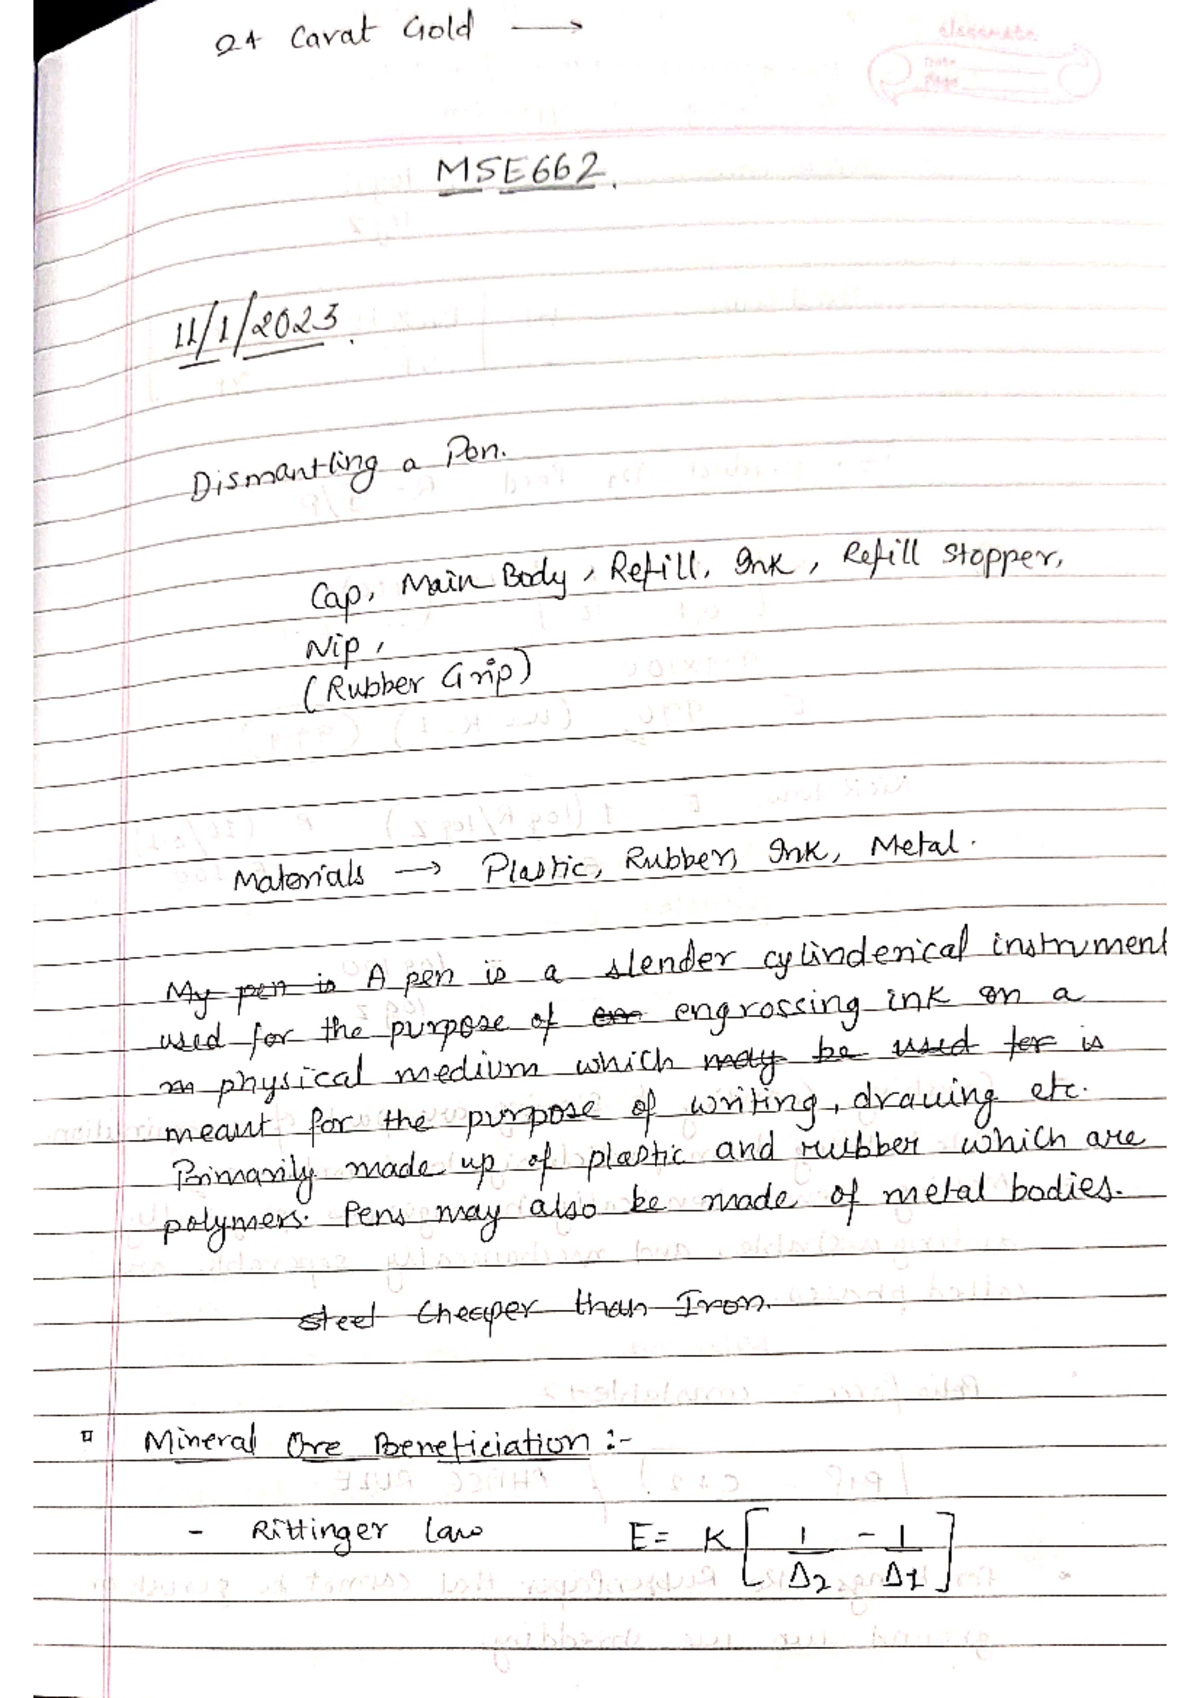 24 Carat Gold →
classmate
Date
Page
MSE662.
11/1/2023.
Dismantling a Pen.
Cap, Main Body, Refill, Ink, Refill Stopper,
Nip,
(Rubber Grip)
Materials → Plastic, Rubber, Ink, Metal.
My pen is A pen is a slender cylinderical instrument
used for the purpose of engrossing ink on a
physical medium which may be used for is
meant for the purpose of writing, drawing etc.
Primarily made up of plastic and rubber which are
polymers. Pens may also be made of metal bodies.
Steel Cheaper than Iron.
Mineral Ore Beneficiation :-
- Rittinger law E = K [ 1/Δ2 - 1/Δ1 ]